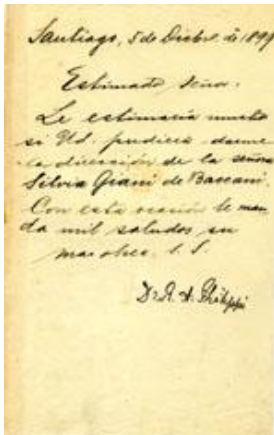 Santiago, 5 de Dicbr. de 1899
Estimado Señor.
Le estimaria mucho
si Ud. pudiera darme
la direccion de la señora
Silvia Giani de Baccani.
Con esta ocasión le man
da mil saludos su
mui obec. S. S.
Dr. R. A. Philippi